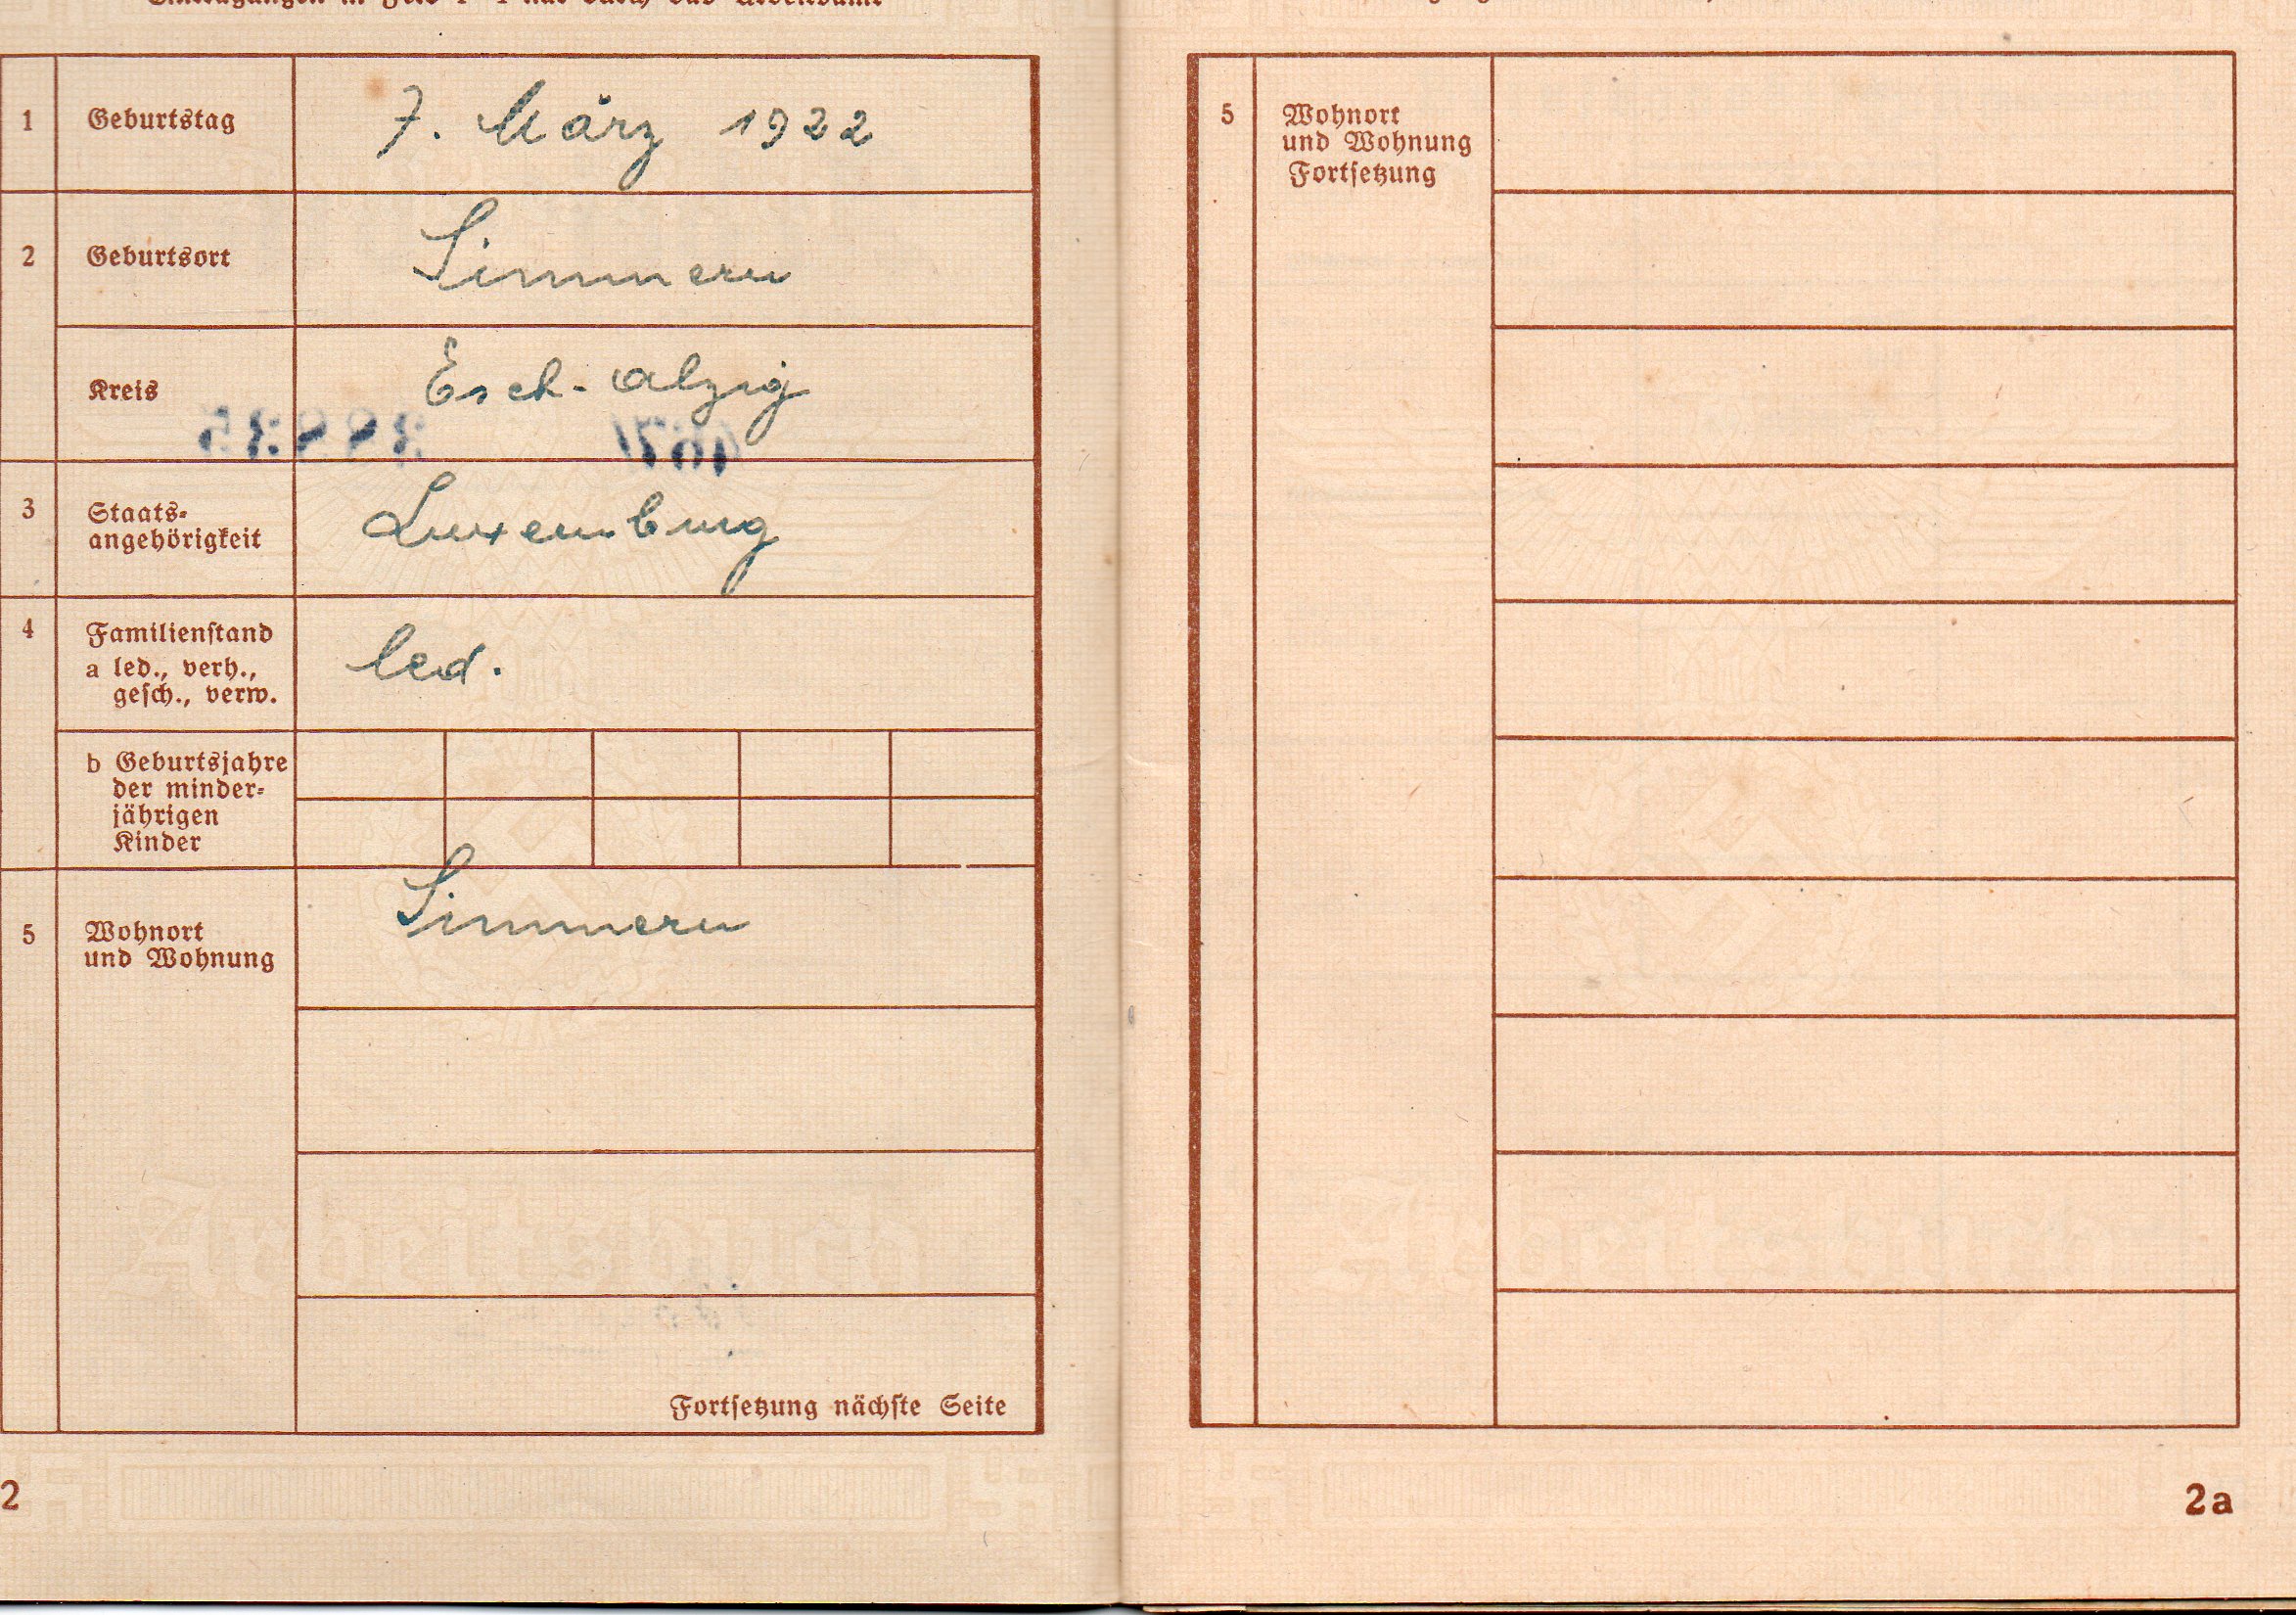 1 Geburtstag 7. März 1922
2 Geburtsort Simmern
Kreis Esch-Alzig
3 Staats-
angehörigkeit Luxemburg
4 Familienstand
a led., verh.,
gesch., verw. led.
b Geburtsjahre
der minder-
jährigen
Kinder
5 Wohnort
und Wohnung Simmern
Arbeitsbuch
Fortsetzung nächste Seite
2
5 Wohnort
und Wohnung
Fortsetzung
Arbeitsbuch
2a